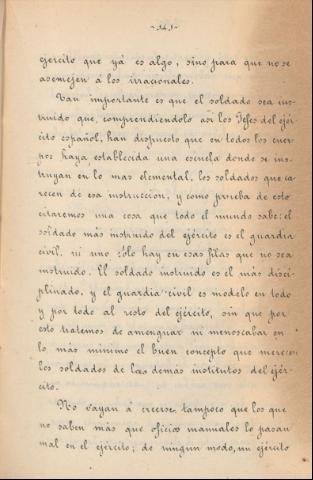 ejercito que yá es algo, sino para que no se
asemejen á los irracionales.
Tan importante es que el soldado sea ins-
truido que, comprendiendolo así los Jefes del ejér-
cito español, han dispuesto que en todos los cuer-
pos haya establecida una escuela donde se ins-
truyan en lo mas elemental, los soldados que ca-
recen de esa instrucción, y como prueba de esto
citaremos una cosa que todo el mundo sabe: el
soldado más instruido del ejército es el guardia
civil, ni uno sólo hay en esas filas que no sea
instruido. El soldado instruido es el más disci-
plinado, y el guardia civil es modelo en todo
y por todo al resto del ejército, sin que por
esto tratemos de amenguar ni menoscabar en
lo más minimo el buen concepto que merecen
los soldados de las demás institutos del ejér-
cito.
No vayan á creerse tampoco que los que
no saben más que oficios manuales lo pasan
mal en el ejército; de ningun modo, un ejército